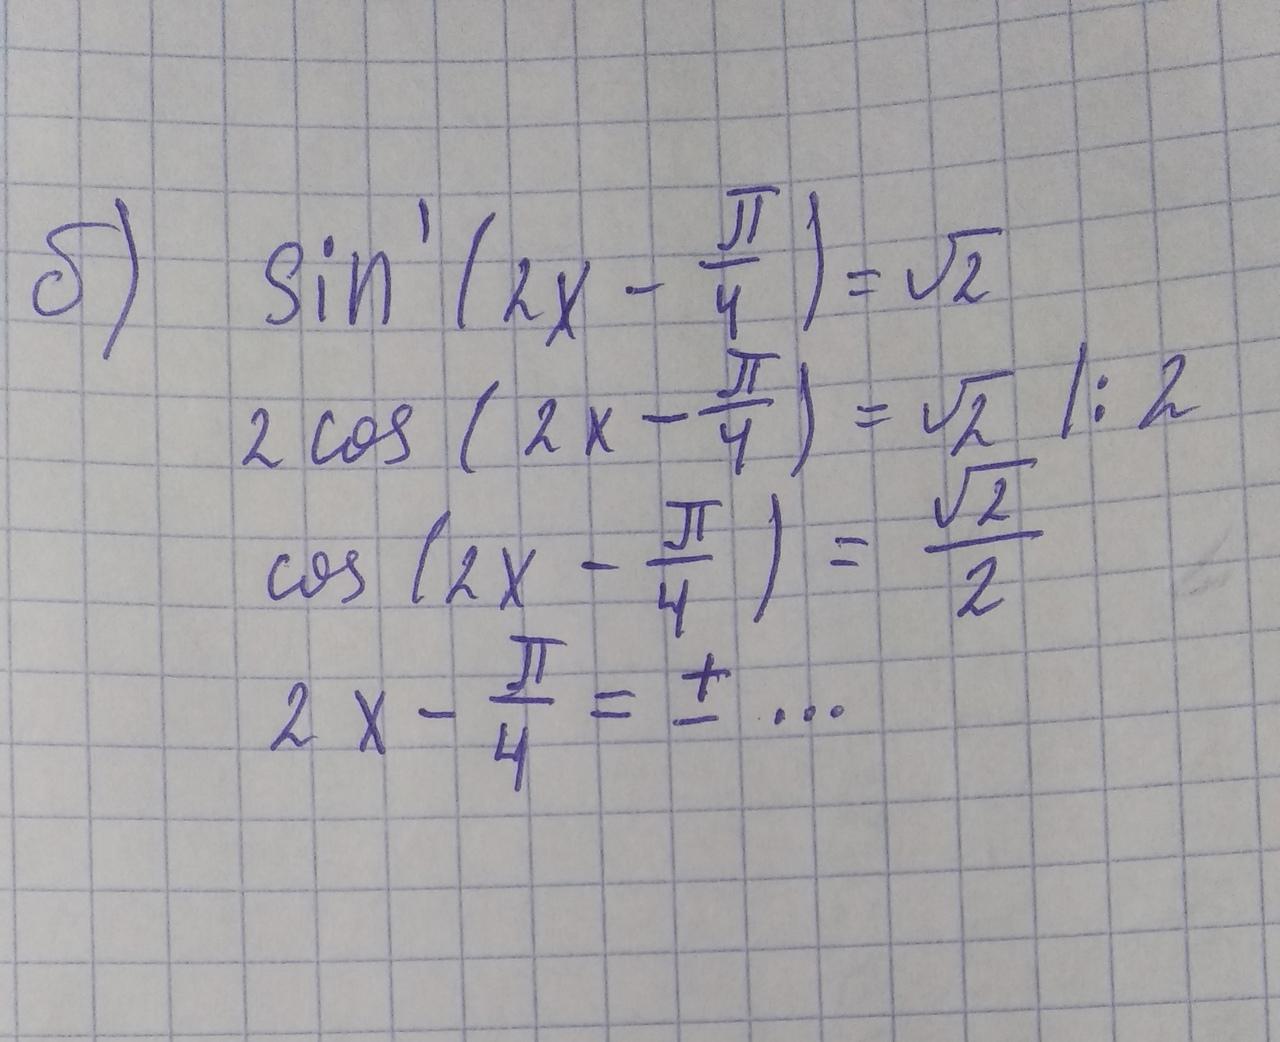 б) sin' (2x - π/4) = √2
2 cos (2x - π/4) = √2 | : 2
cos (2x - π/4) = √2/2
2x - π/4 = ± ...